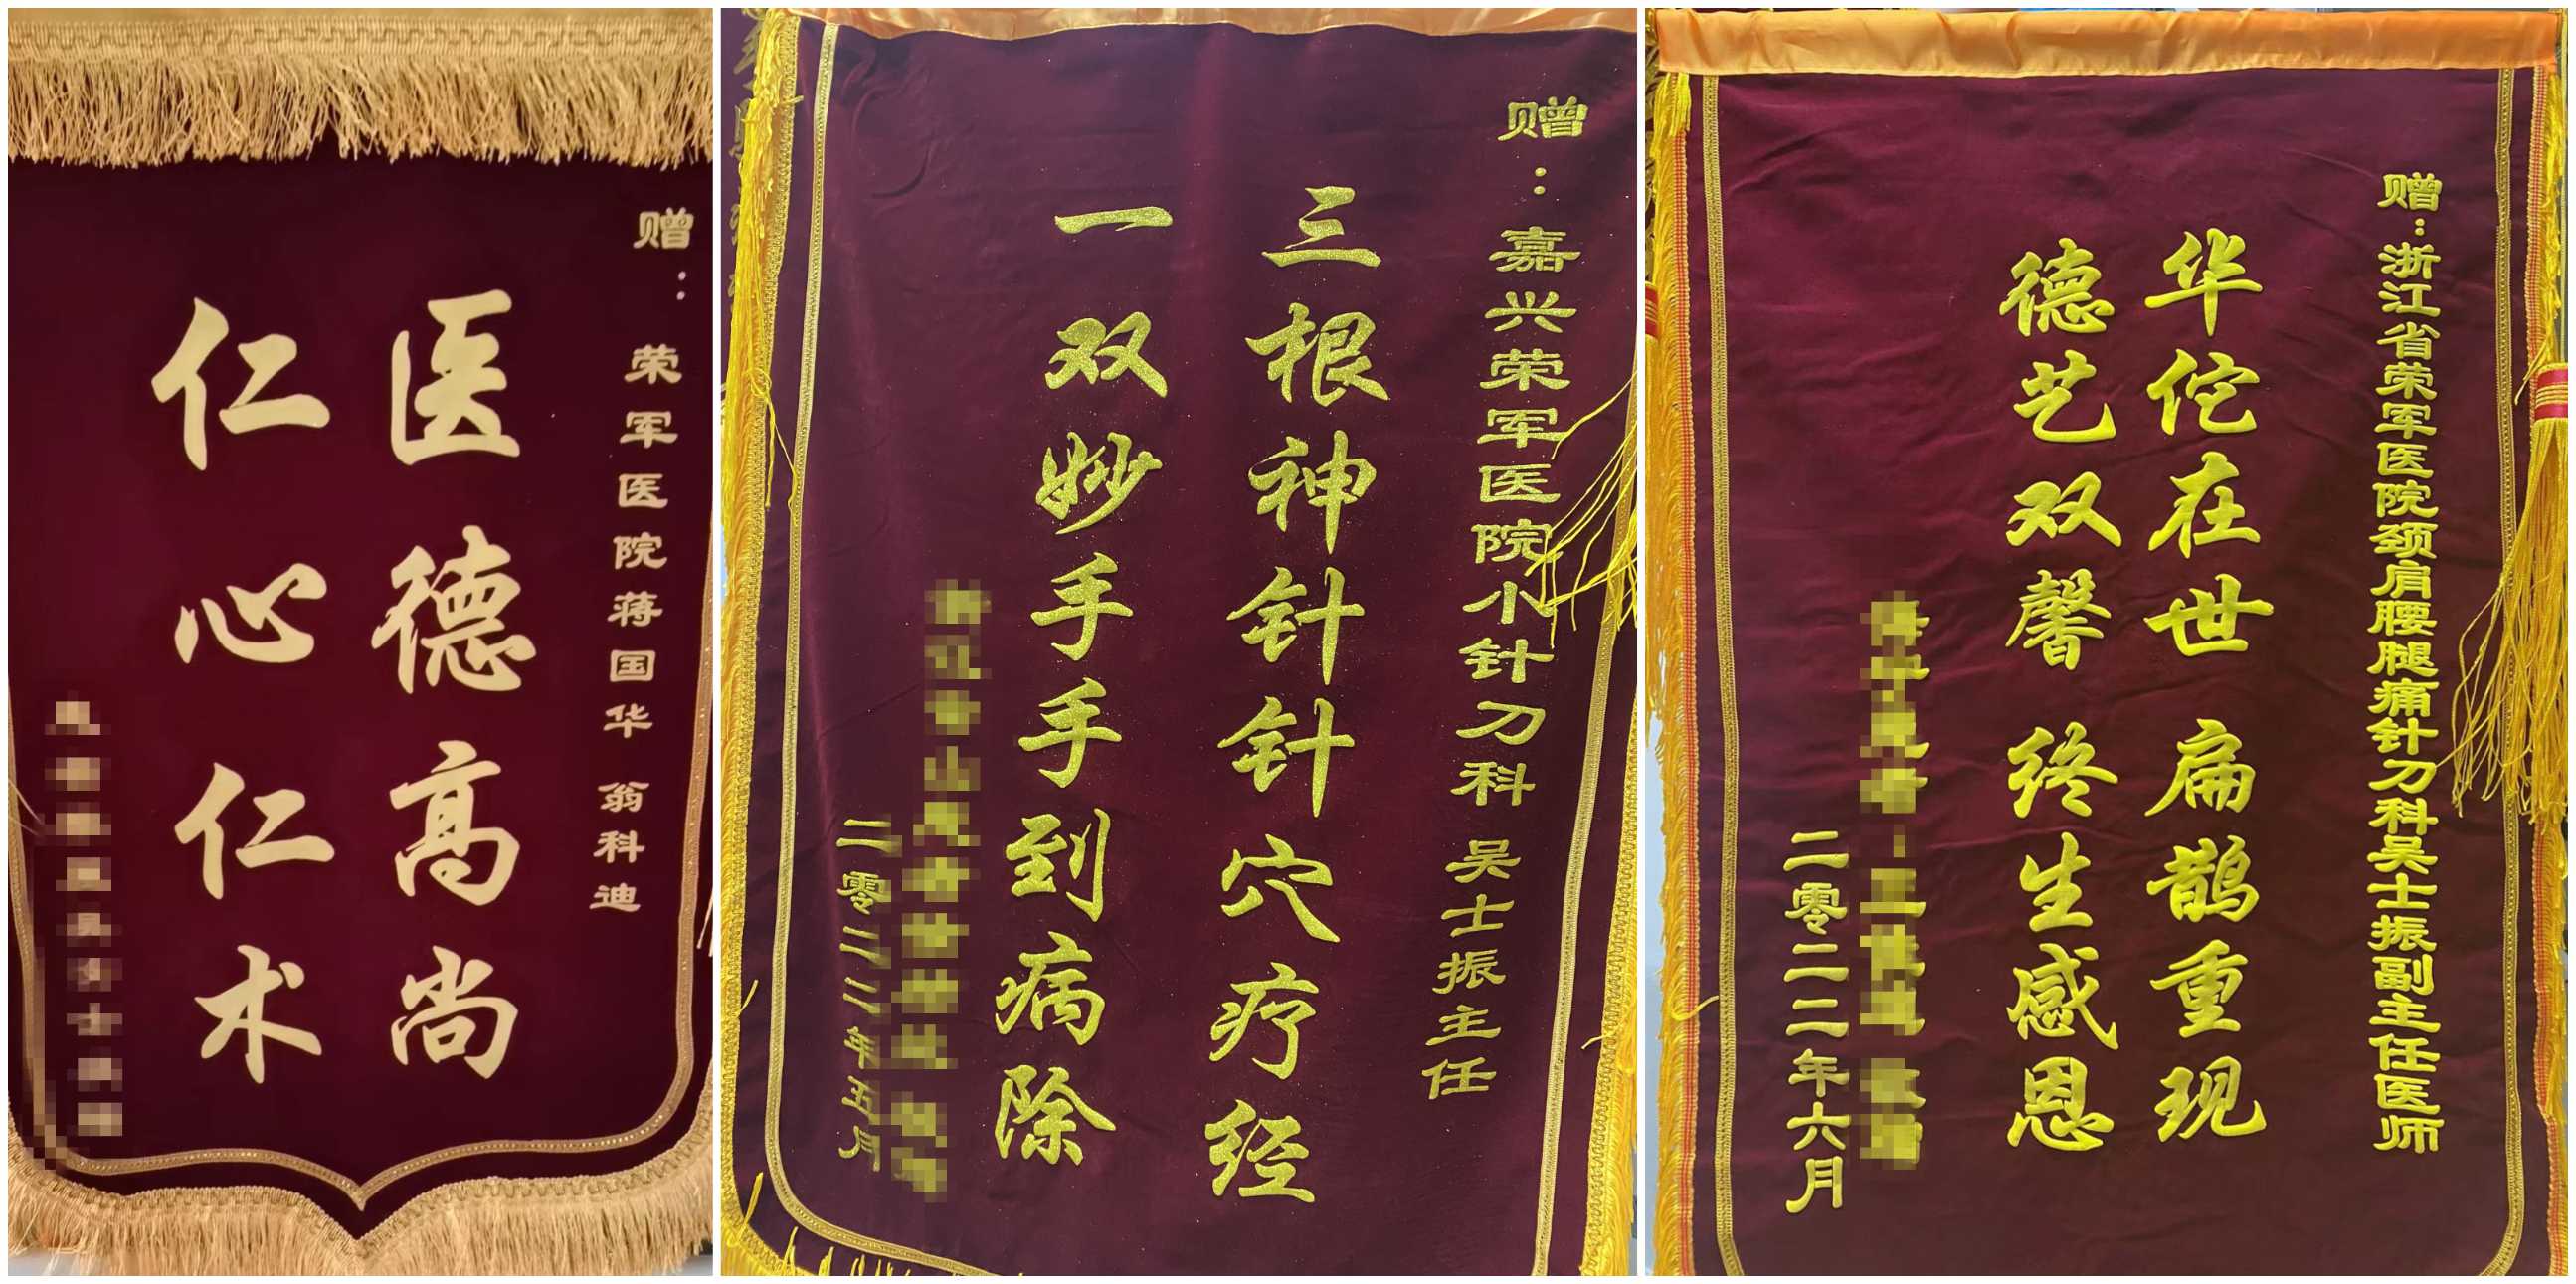 赠：荣军医院蒋国华 翁科迪
医德高尚
仁心仁术
赠：嘉兴荣军医院小针刀科 吴士振主任
三根神针针针穴疗经
一双妙手手到病除
二零二二年五月
赠：浙江省荣军医院颈肩腰腿痛针刀科吴士振副主任医师
华佗在世 扁鹊重现
德艺双馨 终生感恩
二零二二年六月